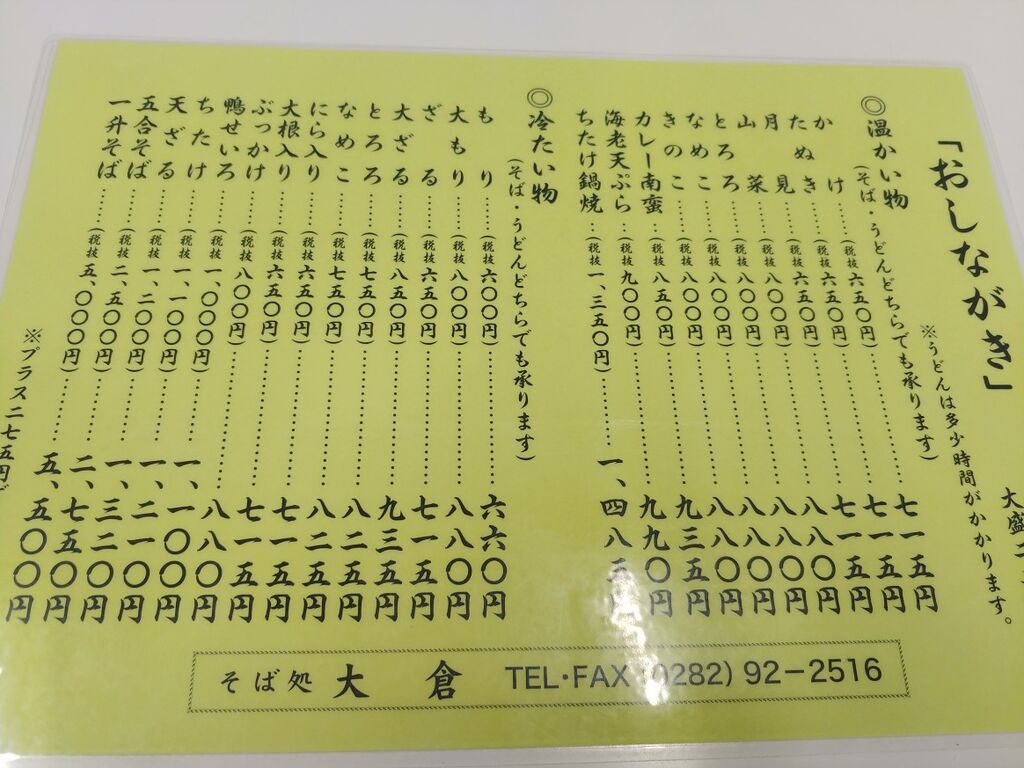 大盛
「おしながき」
※うどんは多少時間がかかります。
◎温かい物
(そば・うどんどちらでも承ります)
かけ……(税抜 六五〇円)……七一五円
たぬき……(税抜 六五〇円)……七一五円
月見……(税抜 六五〇円)……七一五円
山菜……(税抜 八〇〇円)……八八〇円
とろろ……(税抜 八〇〇円)……八八〇円
なめこ……(税抜 八〇〇円)……八八〇円
きのこ……(税抜 八〇〇円)……八八〇円
カレー南蛮……(税抜 八五〇円)……九三五円
海老天ぷら……(税抜 九〇〇円)……九九〇円
ちたけ鍋焼……(税抜 一、三五〇円)……一、四八五円
◎冷たい物
(そば・うどんどちらでも承ります)
もり……(税抜 六〇〇円)……六六〇円
大もり……(税抜 八〇〇円)……八八〇円
ざる……(税抜 六五〇円)……七一五円
大ざる……(税抜 八五〇円)……九三五円
とろろ……(税抜 七五〇円)……八二五円
なめこ……(税抜 七五〇円)……八二五円
にら入り……(税抜 六五〇円)……七一五円
大根入り……(税抜 六五〇円)……七一五円
ぶっかけ……(税抜 八〇〇円)……八八〇円
鴨せいろ……(税抜 一、〇〇〇円)……一、一〇〇円
ちたけ……(税抜 一、一〇〇円)……一、二一〇円
天ざる……(税抜 一、二〇〇円)……一、三二〇円
五合そば……(税抜 二、五〇〇円)……二、七五〇円
一升そば……(税抜 五、〇〇〇円)……五、五〇〇円
※プラス二七五円
そば処 大倉 TEL・FAX (0282) 92-2516